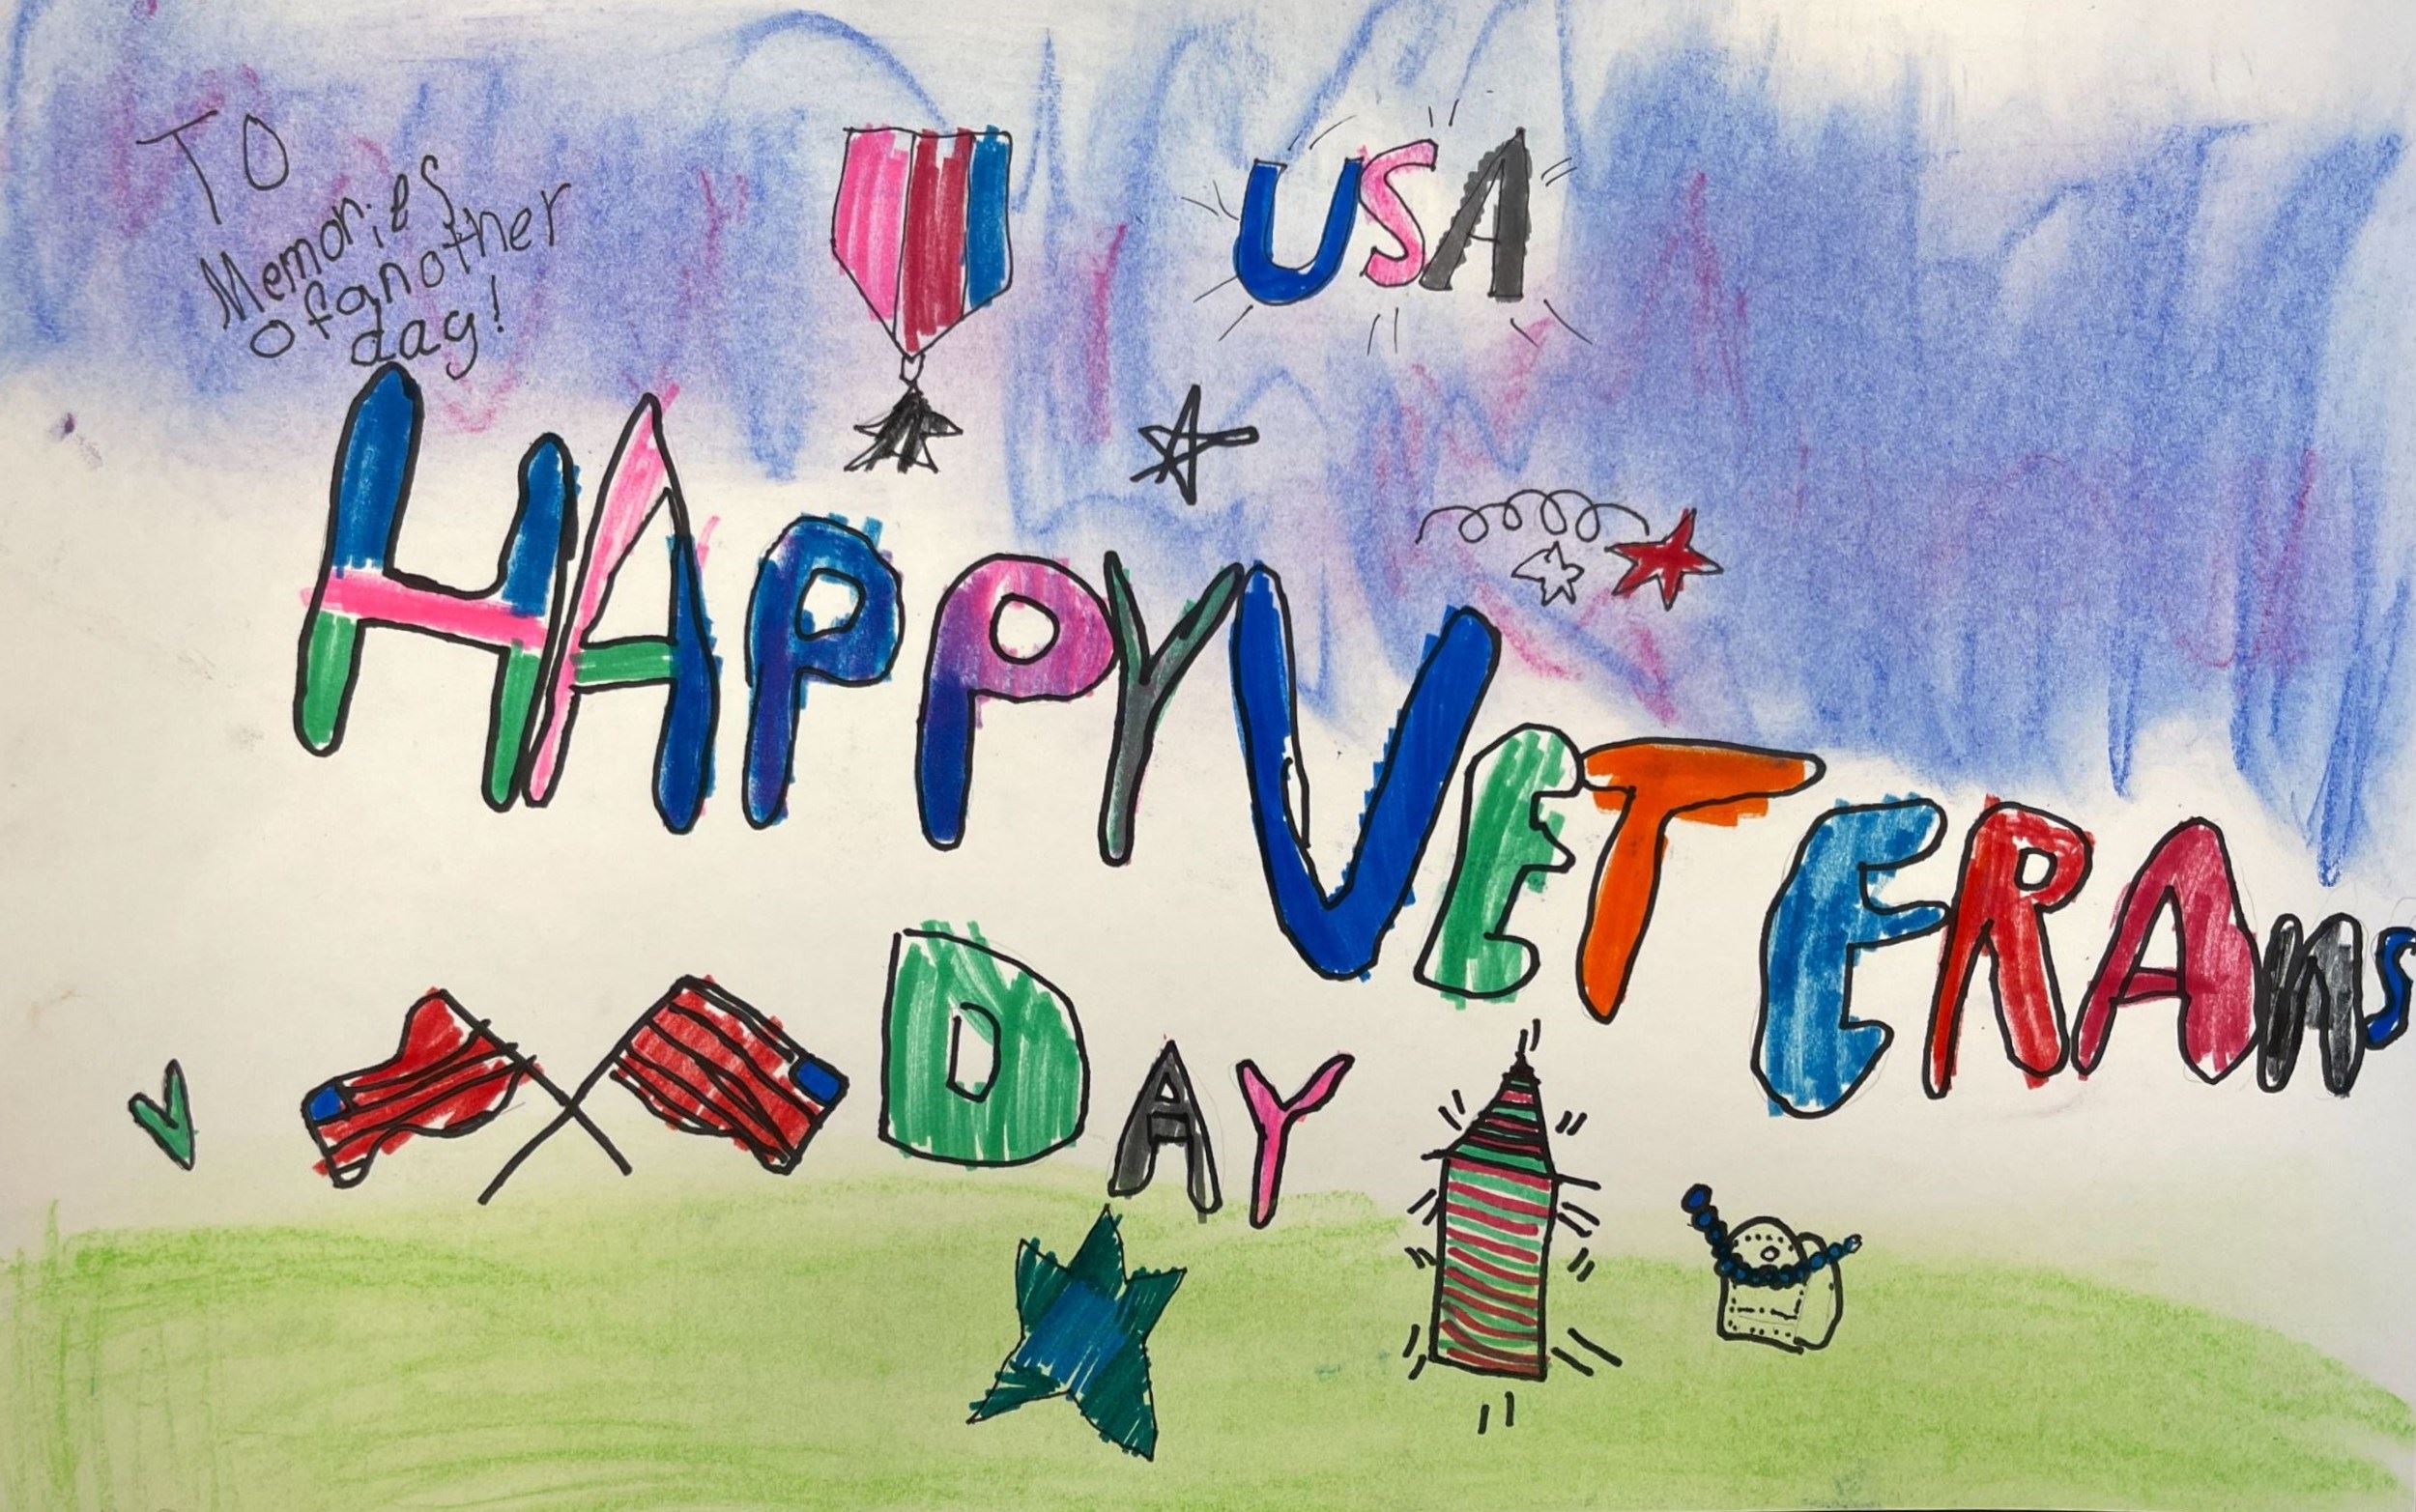 TO
Memories
of another
day!
USA
HAPPY VETERAnS
DAY